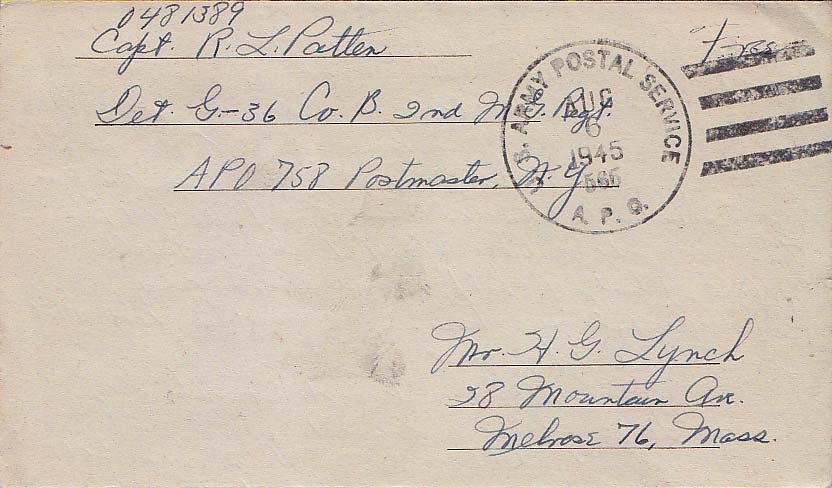 0481389
Capt. R. L. Patten
Free
Det. G-36 Co. B. 2nd M.G. Regt.
APO 758 Postmaster, N.Y.
U.S. ARMY POSTAL SERVICE
AUG
6
1945
A. P. O.
Mr. H. G. Lynch
28 Mountain Ave.
Melrose 76, Mass.